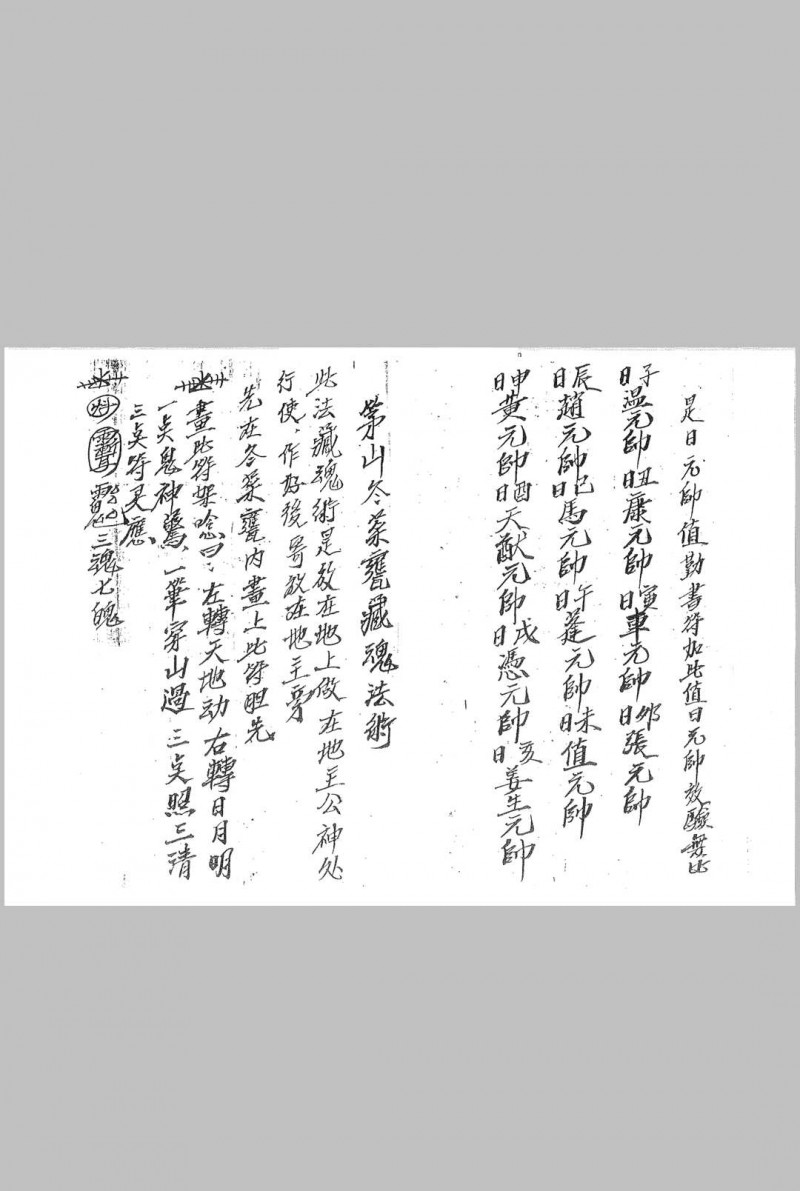 是日元帥值勤書符加此值日元帥效驗無比
子日溫元帥丑日康元帥寅日車元帥卯日張元帥
辰日趙元帥巳日馬元帥午日蓬元帥未日值元帥
申日黄元帥酉日天猷元帥戌日憑元帥亥日姜生元帥
茅山冬菜甕藏魂法術
此法藏魂術是放在地上做在地主公神处
行使、作好後寄放在地主旁
先在冬菜甕内畫上此符胆先
畫此符架唸曰：左轉天地动右轉日月明
一点鬼神驚、一筆穿山過三点照三清
三点符灵應
三魂七魄